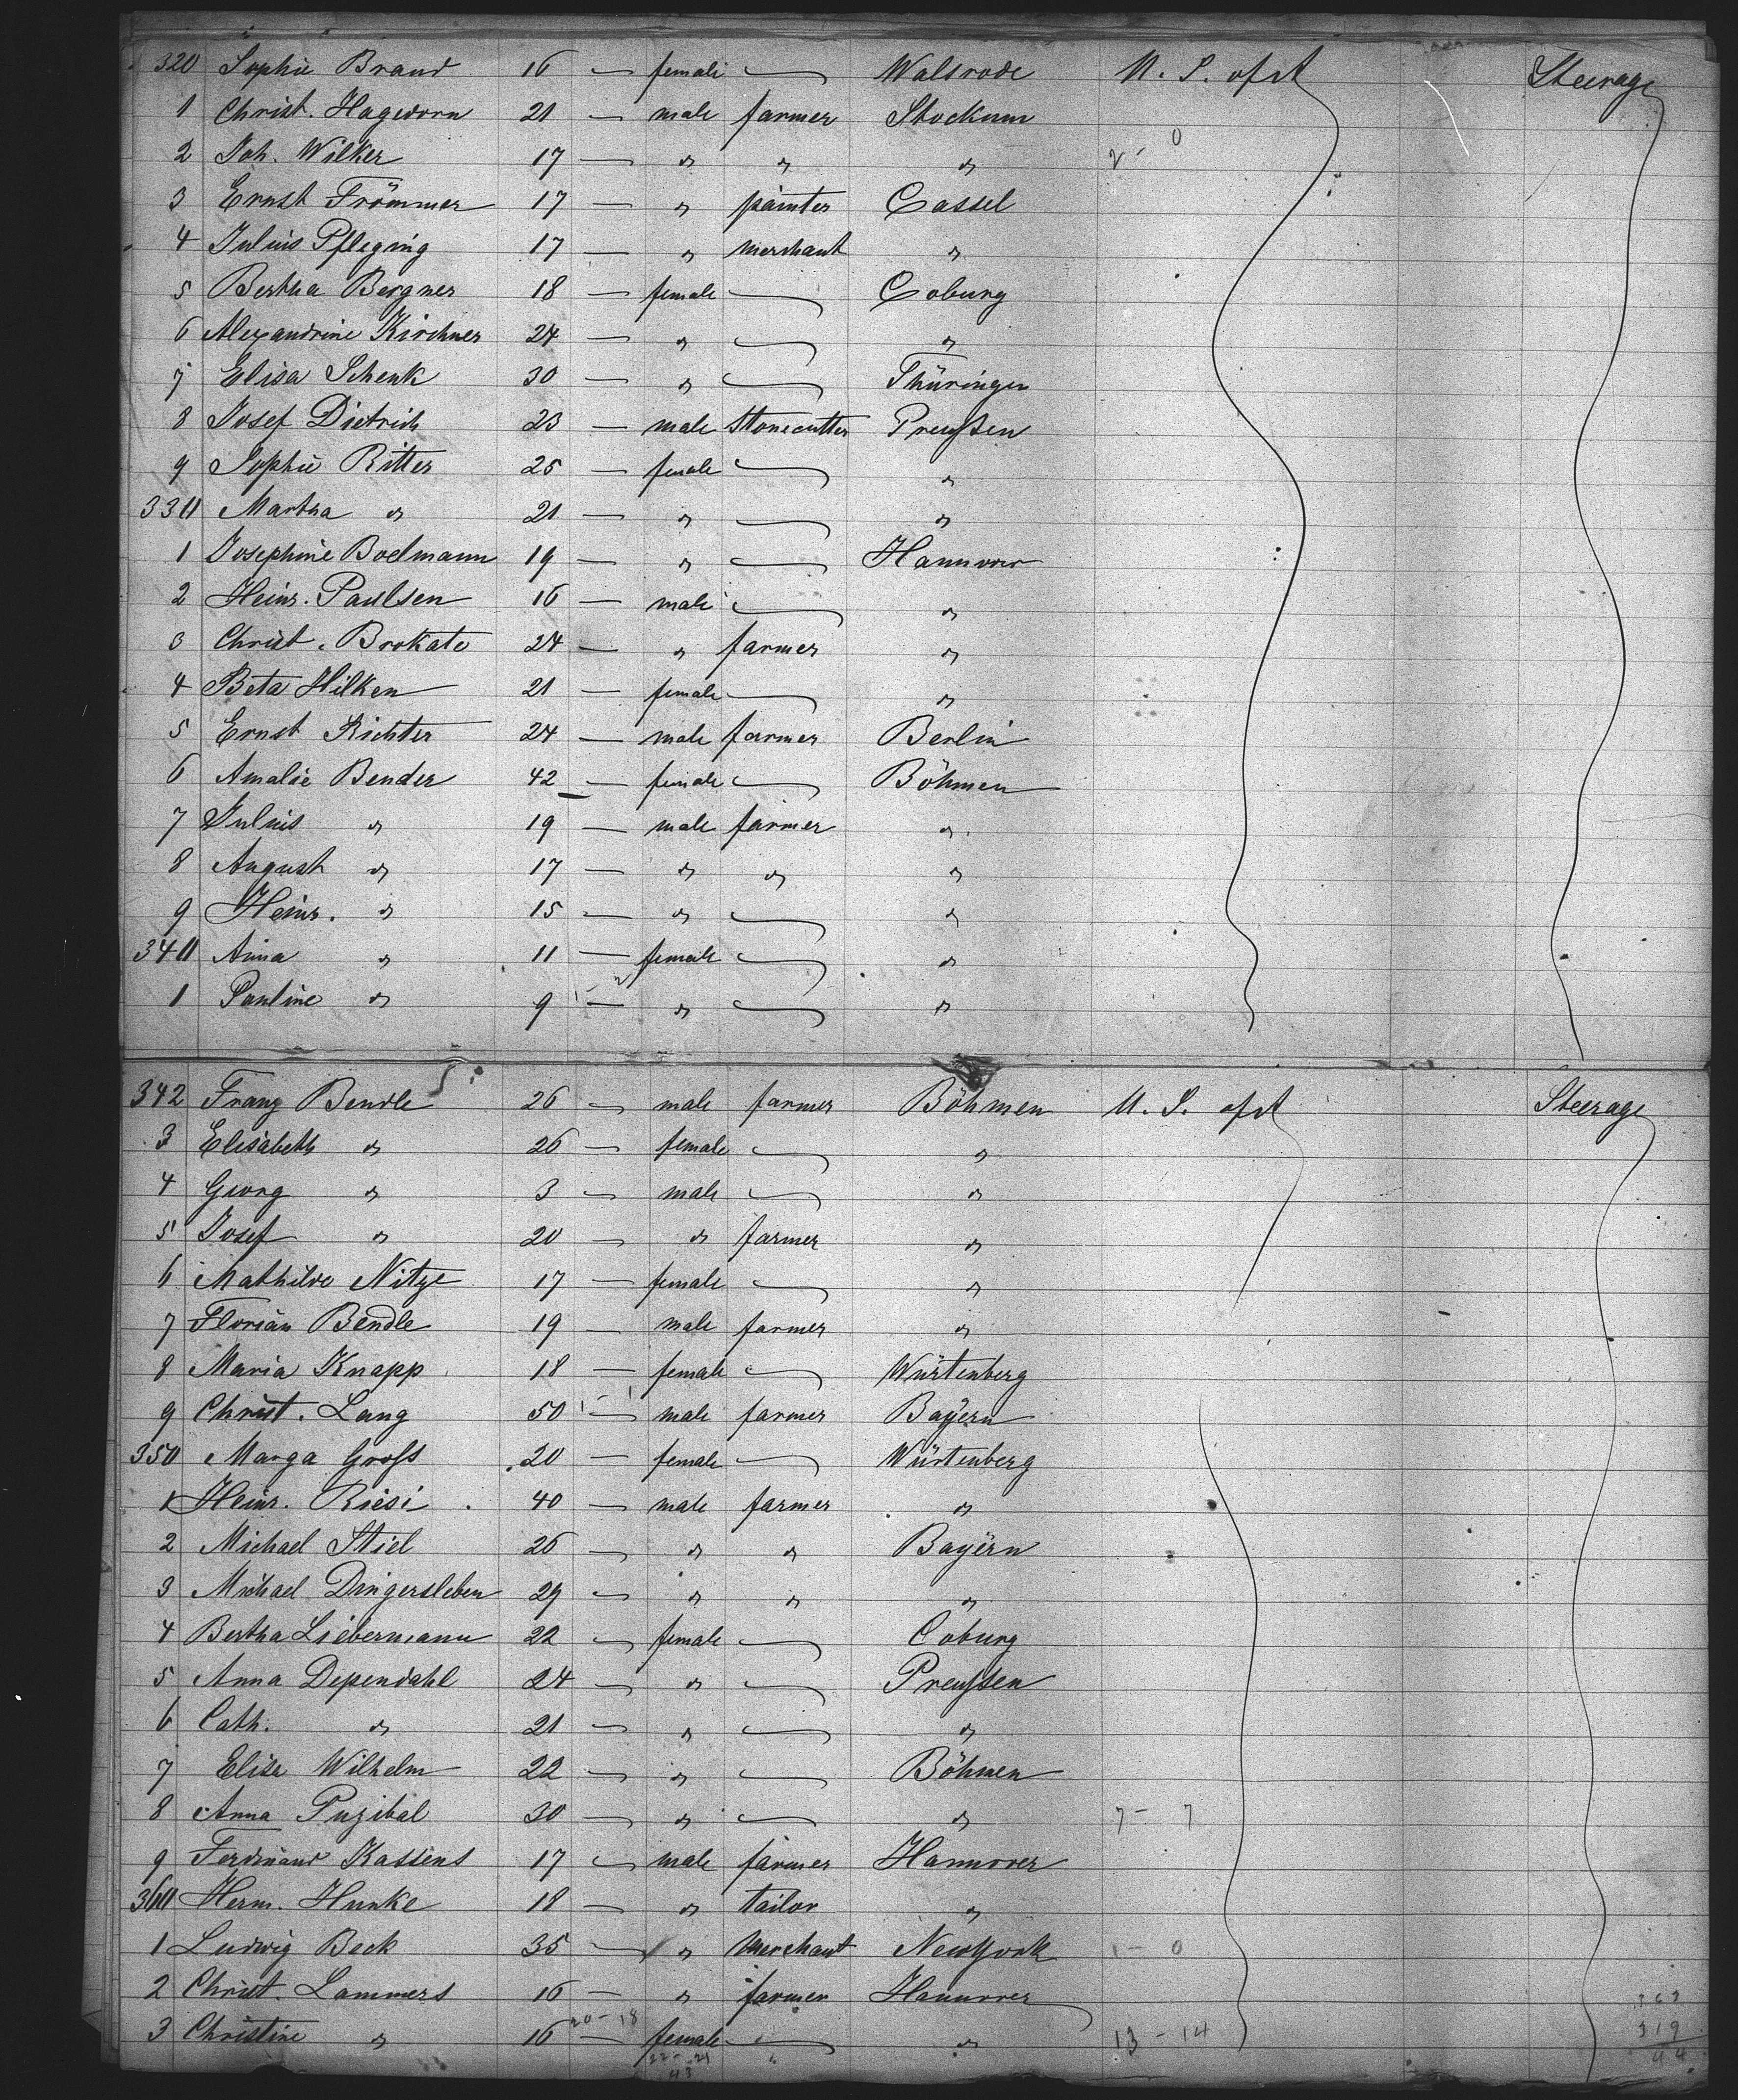 320 Sophie Brand 16 — female — Walsrode U. S. of A Steerage
1 Christ. Hagedorn 21 — male farmer Stockum
2 Joh. Wilker 17 — " " " 2 - 0
3 Ernst Frömmer 17 — " painter Cassel
4 Julius Pfleging 17 — " merchant "
5 Bertha Bergner 18 — female — Coburg
6 Alexandrine Kirchner 24 — " — "
7 Elisa Schenk 30 — " — Thüringen
8 Josef Dietrich 23 — male Stonecutter Preußen
9 Sophie Ritter 25 — female — "
330 Martha " 21 — " — "
1 Josephine Boelmann 19 — " — Hannover
2 Heinr. Paulsen 16 — male — "
3 Christ. Brokate 24 — " farmer "
4 Beta Hilken 21 — female — "
5 Ernst Richter 24 — male farmer Berlin
6 Amalie Bender 42 — female — Böhmen
7 Julius " 19 — male farmer "
8 August " 17 — " " "
9 Heinr. " 15 — " — "
340 Anna " 11 — female — "
1 Pauline " 9 — " — "
342 Franz Bendle 26 — male farmer Böhmen U. S. of A Steerage
3 Elisabeth " 26 — female — "
4 Georg " 3 — male — "
5 Josef " 20 — " farmer "
6 Mathilde Nitze 17 — female — "
7 Florian Bendle 19 — male farmer "
8 Maria Knapp 18 — female — Würtenberg
9 Christ. Lang 50 — male farmer Bayern
350 Marga Groß 20 — female — Würtenberg
1 Heinr. Riesi 40 — male farmer "
2 Michael Stiel 26 — " " Bayern
3 Michael Dingersleben 29 — " " "
4 Bertha Liebermann 22 — female — Coburg
5 Anna Dependahl 24 — " — Preußen
6 Cath. " 21 — " — "
7 Elise Wilhelm 22 — " — Böhmen
8 Anna Puzibal 30 — " — " 7 - 7
9 Ferdinand Kassens 17 — male farmer Hannover
360 Herm. Hunke 18 — " tailor "
1 Ludwig Beck 35 — " Merchant NewYork 1 - 0
2 Christ. Lammers 16 — " farmer Hannover 363
3 Christine " 16 20-18 — female — " 13 - 14 319
22-21 44
43